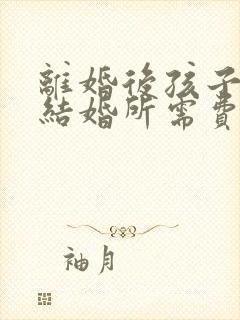 離婚後孩子
結婚所需費
袖月